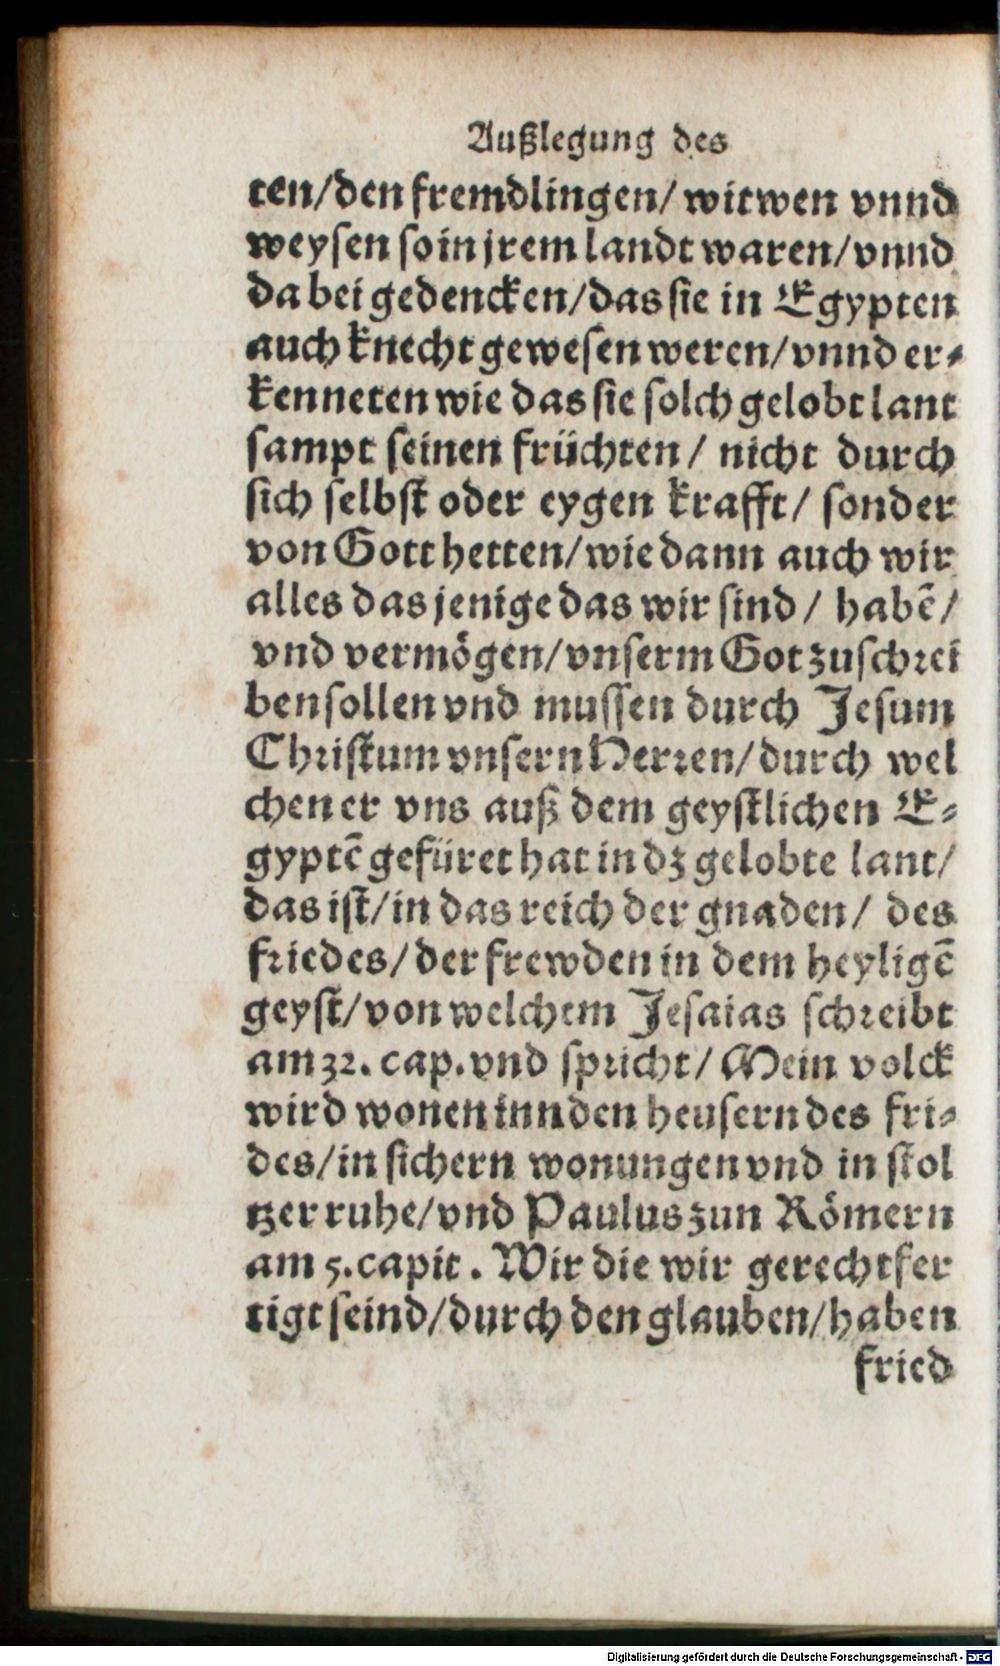 Außlegung des
ten/den fremdlingen/ witwen vnnd
weysen so in jrem landt waren/vnnd
da bei gedencken/das sie in Egypten
auch knecht gewesen weren/vnnd er⸗
kenneten wie das sie solch gelobt lant
sampt seinen früchten/ nicht durch
sich selbst oder eygen krafft/ sonder
von Gott hetten/wie dann auch wir
alles das jenige das wir sind/ habē/
vnd vermögen/vnserm Got zuschrei
ben sollen vnd mussen durch Jesum
Christum vnsern Herren/durch wel
chen er vns auß dem geystlichen E⸗
gyptē gefüret hat in dz gelobte lant/
das ist/in das reich der gnaden/ des
friedes/der frewden in dem heyligē
geyst/von welchem Jesaias schreibt
am 32. cap. vnd spricht/ Mein volck
wird wonen inn den heusern des fri⸗
des/in sichern wonungen vnd in stol
tzer ruhe/vnd Paulus zun Römern
am 5. capit. Wir die wir gerechtfer
tigt seind/durch den glauben/haben
fried
Digitalisierung gefördert durch die Deutsche Forschungsgemeinschaft - DFG